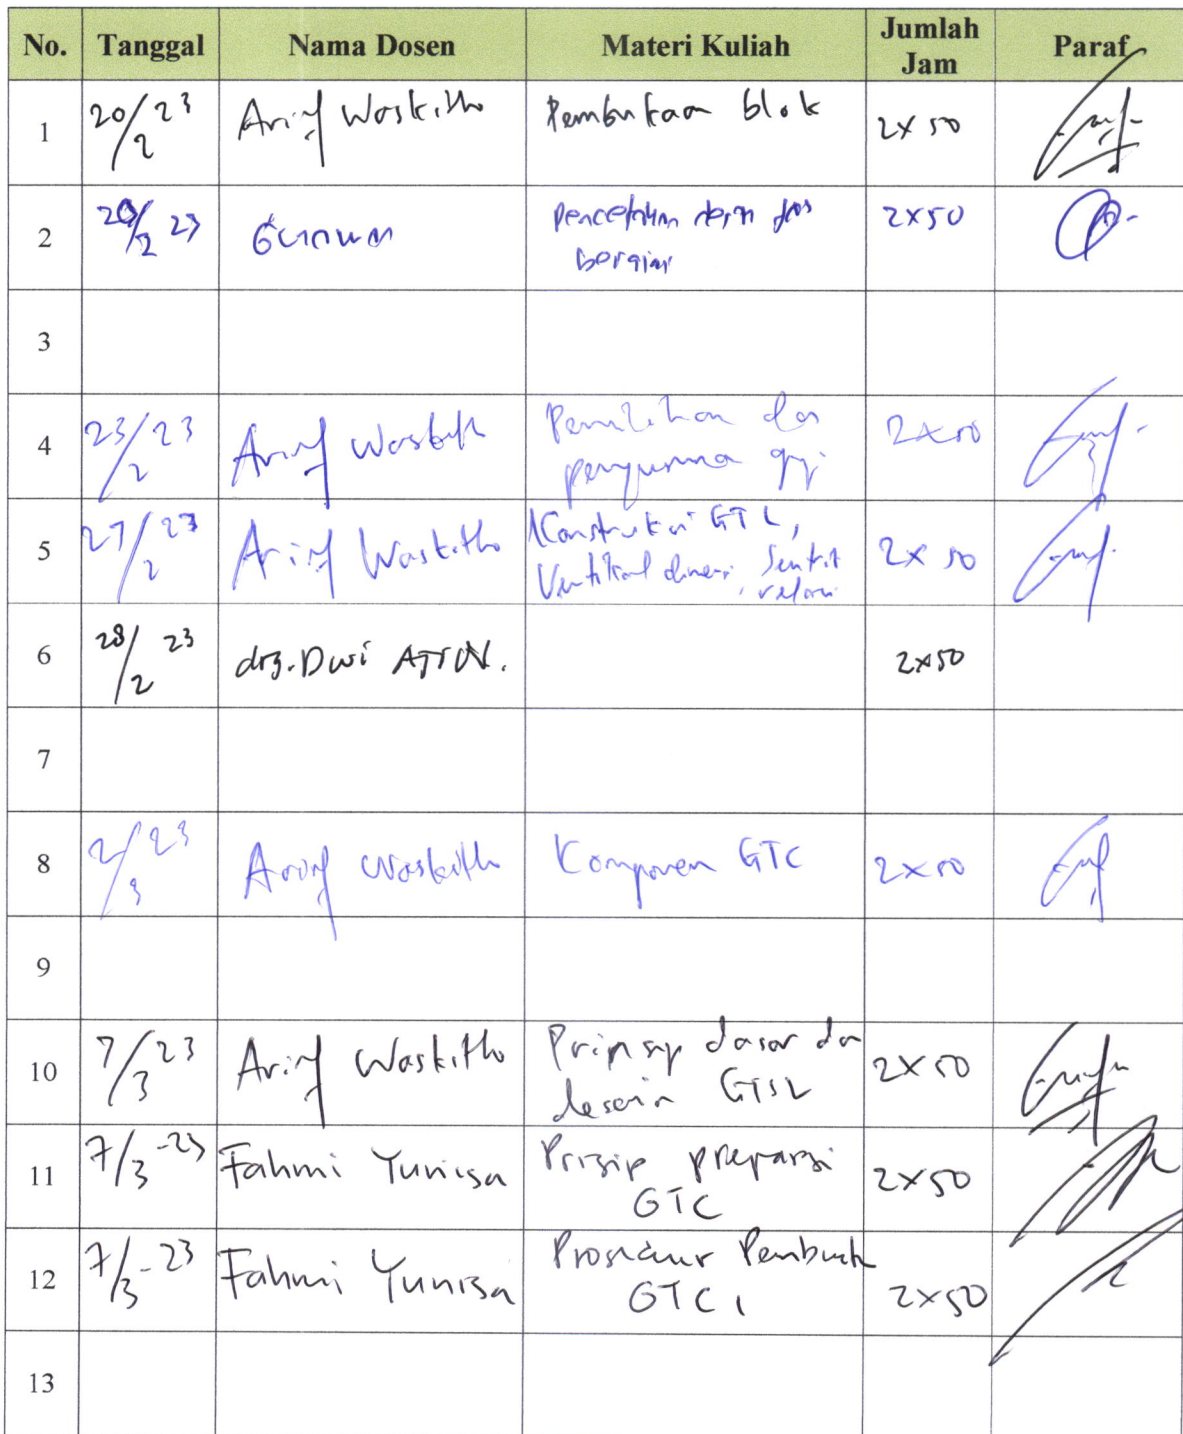 No. Tanggal Nama Dosen Materi Kuliah Jumlah Jam Paraf
1 20/2 23 Arif Waskitho Pembukaan blok 2x50
2 20/2 23 Gunawan 2x50
3
4 23/2 23 Arif Waskitho Pemilihan dan
penyusunan gigi 2x50
5 27/2 23 Arif Waskitho Konstruksi GTL,
Vertikal dimensi, Sentrik
relasi 2x50
6 28/2 23 drg. Dwi 2x50
7
8 2/3 23 Arif Waskitho Komponen GTC 2x50
9
10 7/3 23 Arif Waskitho Prinsip dasar dan
desain GTSL 2x50
11 7/3-23 Fahmi Yunisa Prisip preparasi
GTC 2x50
12 7/3-23 Fahmi Yunisa Prosedur Pembuatan
GTC 1 2x50
13